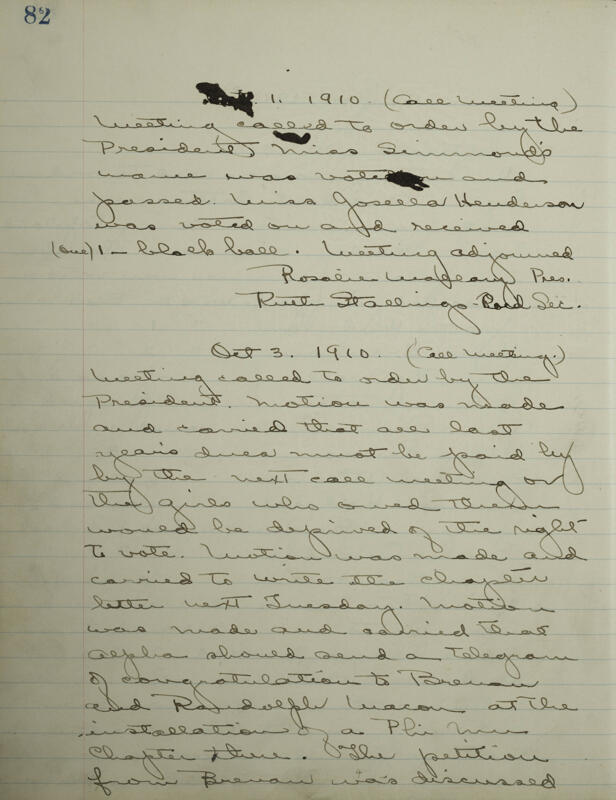 82
1. 1910. (Call Meeting)
Meeting called to order by the
President. Miss Simmond's
name was voted on and
passed. Miss Josella Henderson
was voted on and received
(one) 1 - black ball. Meeting adjourned
Rosalie Pres.
Ruth Stallings Rec'd Sec.
Oct 3. 1910. (Call Meeting.)
Meeting called to order by the
President. Motion was made
and carried that all last
year's dues must be paid by
by the next call meeting or
the girls who owed them
would be deprived of the right
to vote. Motion was made and
carried to write the chapter
letter next Tuesday. Motion
was made and carried that
Alpha should send a telegram
of congratulation to Brenau
and Randolph Macon at the
installation of a Phi Mu
Chapter there. The petition
from Brenau was discussed